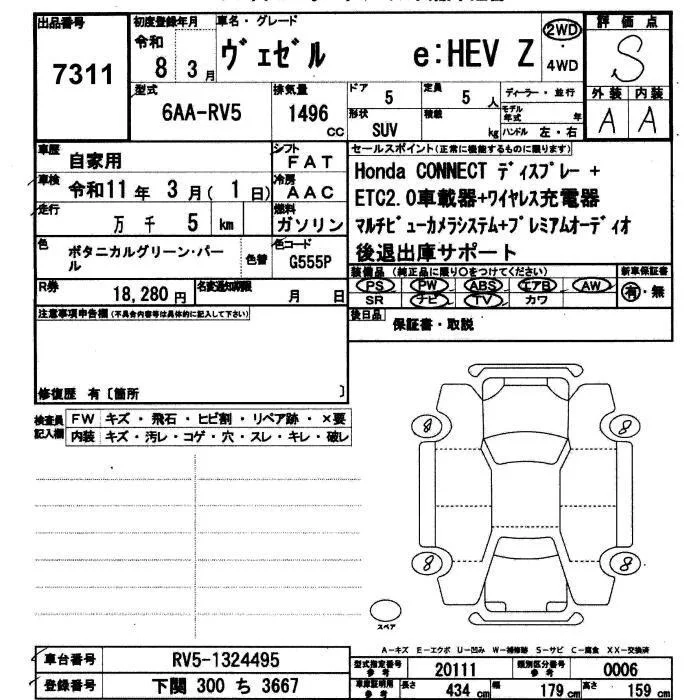 出品番号
7311
初度登録年月
令和
8 3 月
車名・グレード
ヴェゼル e:HEV Z
2WD
・
4WD
評価点
S
外装 内装
A A
型式
6AA-RV5
排気量
1496
CC
ドア
5
定員
5 人
形状
SUV
積載
kg
ディーラー・並行
モデル年式 年
ハンドル 左・右
車歴
自家用
シフト
FAT
車検
令和11年 3月( 1日)
冷房
AAC
走行
万 千 5 km
燃料
ガソリン
色
ボタニカルグリーン・パール
色替
色コード
G555P
R券
18,280 円
名変通知期限
月 日
セールスポイント(正常に機能するものに限ります)
Honda CONNECT ディスプレー +
ETC2.0車載器+ワイヤレス充電器
マルチビューカメラシステム+プレミアムオーディオ
後退出庫サポート
装備品 (純正品に限り○をつけてください)
PS PW ABS エアB AW
SR ナビ TV カワ
新車保証書
有・無
後日品
保証書・取説
注意事項申告欄(不具合内容等は具体的に記入して下さい)
修復歴 有〔箇所 〕
検査員
記入欄
FW キズ・飛石・ヒビ割・リペア跡・×要
内装 キズ・汚レ・コゲ・穴・スレ・キレ・破レ
8 8
8 8
スペア
A-キズ E-エクボ U-凹み W-補修跡 S-サビ C-腐食 XX-交換済
車台番号
RV5-1324495
登録番号
下関 300 ち 3667
型式指定番号
参考
20111
類別区分番号
参考
0006
車庫証明用
参考
長さ 434 cm
幅 179 cm
高さ 159 cm